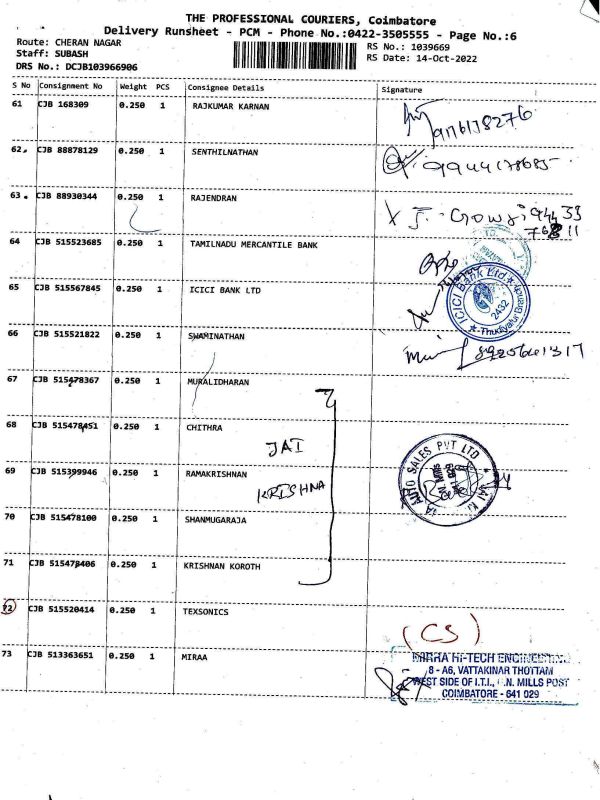 THE PROFESSIONAL COURIERS, Coimbatore
Delivery Runsheet - PCM - Phone No.:0422-3505555 - Page No.:6
Route: CHERAN NAGAR
Staff: SUBASH
DRS No.: DCJB103966906
RS No.: 1039669
RS Date: 14-Oct-2022
S No Consignment No Weight PCS Consignee Details Signature
61 CJB 168309 0.250 1 RAJKUMAR KARNAN
62. CJB 88878129 0.250 1 SENTHILNATHAN
63. CJB 88930344 0.250 1 RAJENDRAN
64 CJB 515523685 0.250 1 TAMILNADU MERCANTILE BANK
65 CJB 515567845 0.250 1 ICICI BANK LTD
ICICI Bank Ltd
2432
Thudiyalur Branch
66 CJB 515521822 0.250 1 SWAMINATHAN
67 CJB 515478367 0.250 1 MURALIDHARAN
68 CJB 515478451 0.250 1 CHITHRA
JAI
KRISHNA
AUTO SALES PVT LTD
69 CJB 515399946 0.250 1 RAMAKRISHNAN
70 CJB 515478100 0.250 1 SHANMUGARAJA
71 CJB 515478406 0.250 1 KRISHNAN KOROTH
72 CJB 515520414 0.250 1 TEXSONICS
(CS)
73 CJB 513363651 0.250 1 MIRAA
HI-TECH ENGINEERING
8 - A6, VATTAKINAR THOTTAM
WEST SIDE OF I.T.I., G.N. MILLS POST
COIMBATORE - 641 029